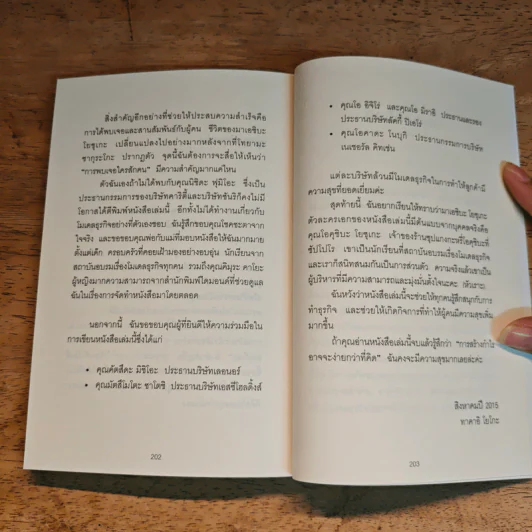 สิ่งสำคัญอีกอย่างที่ช่วยให้ประสบความสำเร็จคือ
การได้พบเจอและสานสัมพันธ์กับผู้คน ชีวิตของมาเอชิบะ
โยชุเกะ เปลี่ยนแปลงไปอย่างมากหลังจากที่ไทยามะ
ซากุระโกะ ปรากฏตัว จุดนี้ฉันต้องการจะสื่อให้เห็นว่า
"การพบเจอใครสักคน" มีความสำคัญมากแค่ไหน
ตัวฉันเองถ้าไม่ได้พบกับคุณนิชิดะ ฟุมิโอะ ซึ่งเป็น
ประธานกรรมการของบริษัทคาริตี้และบริษัทซันริกคงไม่มี
โอกาสได้ตีพิมพ์หนังสือเล่มนี้ อีกทั้งไม่ได้ทำงานเกี่ยวกับ
โมเดลธุรกิจอย่างที่ตัวเองชอบ ฉันรู้สึกขอบคุณโชคชะตาจาก
ใจจริง และขอขอบคุณพ่อกับแม่ที่มอบหนังสือให้ฉันมากมาย
ตั้งแต่เด็ก ครอบครัวที่คอยเฝ้ามองอย่างอบอุ่น นักเรียนจาก
สถาบันอบรมเรื่องโมเดลธุรกิจทุกคน รวมถึงคุณคิมุระ คาโยะ
ผู้หญิงมากความสามารถจากสำนักพิมพ์ไดมอนด์ที่ช่วยดูแล
ฉันในเรื่องการจัดทำหนังสือมาโดยตลอด
นอกจากนี้ ฉันขอขอบคุณผู้ที่ยินดีให้ความร่วมมือใน
การเขียนหนังสือเล่มนี้ซึ่งได้แก่
• คุณคัตสึตะ มิชิโอะ ประธานบริษัทเลอนอร์
• คุณมัตสึโมโตะ ซาโตชิ ประธานบริษัทเอสซีโฮลดิ้งส์
202
• คุณโอ อิจิโร่ และคุณโอ มิราอิ ประธานและรอง
ประธานบริษัทลัคกี้ ปิเอโร่
• คุณโอคาดะ โนบุกิ ประธานกรรมการบริษัท
เนเชอรัล คิทเช่น
แต่ละบริษัทล้วนมีโมเดลธุรกิจในการทำให้ลูกค้ามี
ความสุขที่ยอดเยี่ยมค่ะ
สุดท้ายนี้ ฉันอยากเรียนให้ทราบว่ามาเอชิบะ โยชุเกะ
ตัวละครเอกของหนังสือเล่มนี้มีต้นแบบจากบุคคลจริงคือ
คุณโอคุชิบะ โยชุเกะ เจ้าของร้านซุปแกงกะหรี่โอคุชิบะที่
ซัปโปโร เขาเป็นนักเรียนที่สถาบันอบรมเรื่องโมเดลธุรกิจ
และเราก็สนิทสนมกันเป็นการส่วนตัว ความจริงแล้วเขาเป็น
ผู้บริหารที่มีความสามารถและมุ่งมั่นตั้งใจนะคะ (หัวเราะ)
ฉันหวังว่าหนังสือเล่มนี้จะช่วยให้ทุกคนรู้สึกสนุกกับการ
ทำธุรกิจ และช่วยให้เกิดกิจการที่ทำให้ผู้คนมีความสุขเพิ่ม
มากขึ้น
ถ้าคุณอ่านหนังสือเล่มนี้จบแล้วรู้สึกว่า "การสร้างกำไร
อาจจะง่ายกว่าที่คิด" ฉันคงจะมีความสุขมากเลยล่ะค่ะ
สิงหาคมปี 2015
ทาคาอิ โยโกะ
203